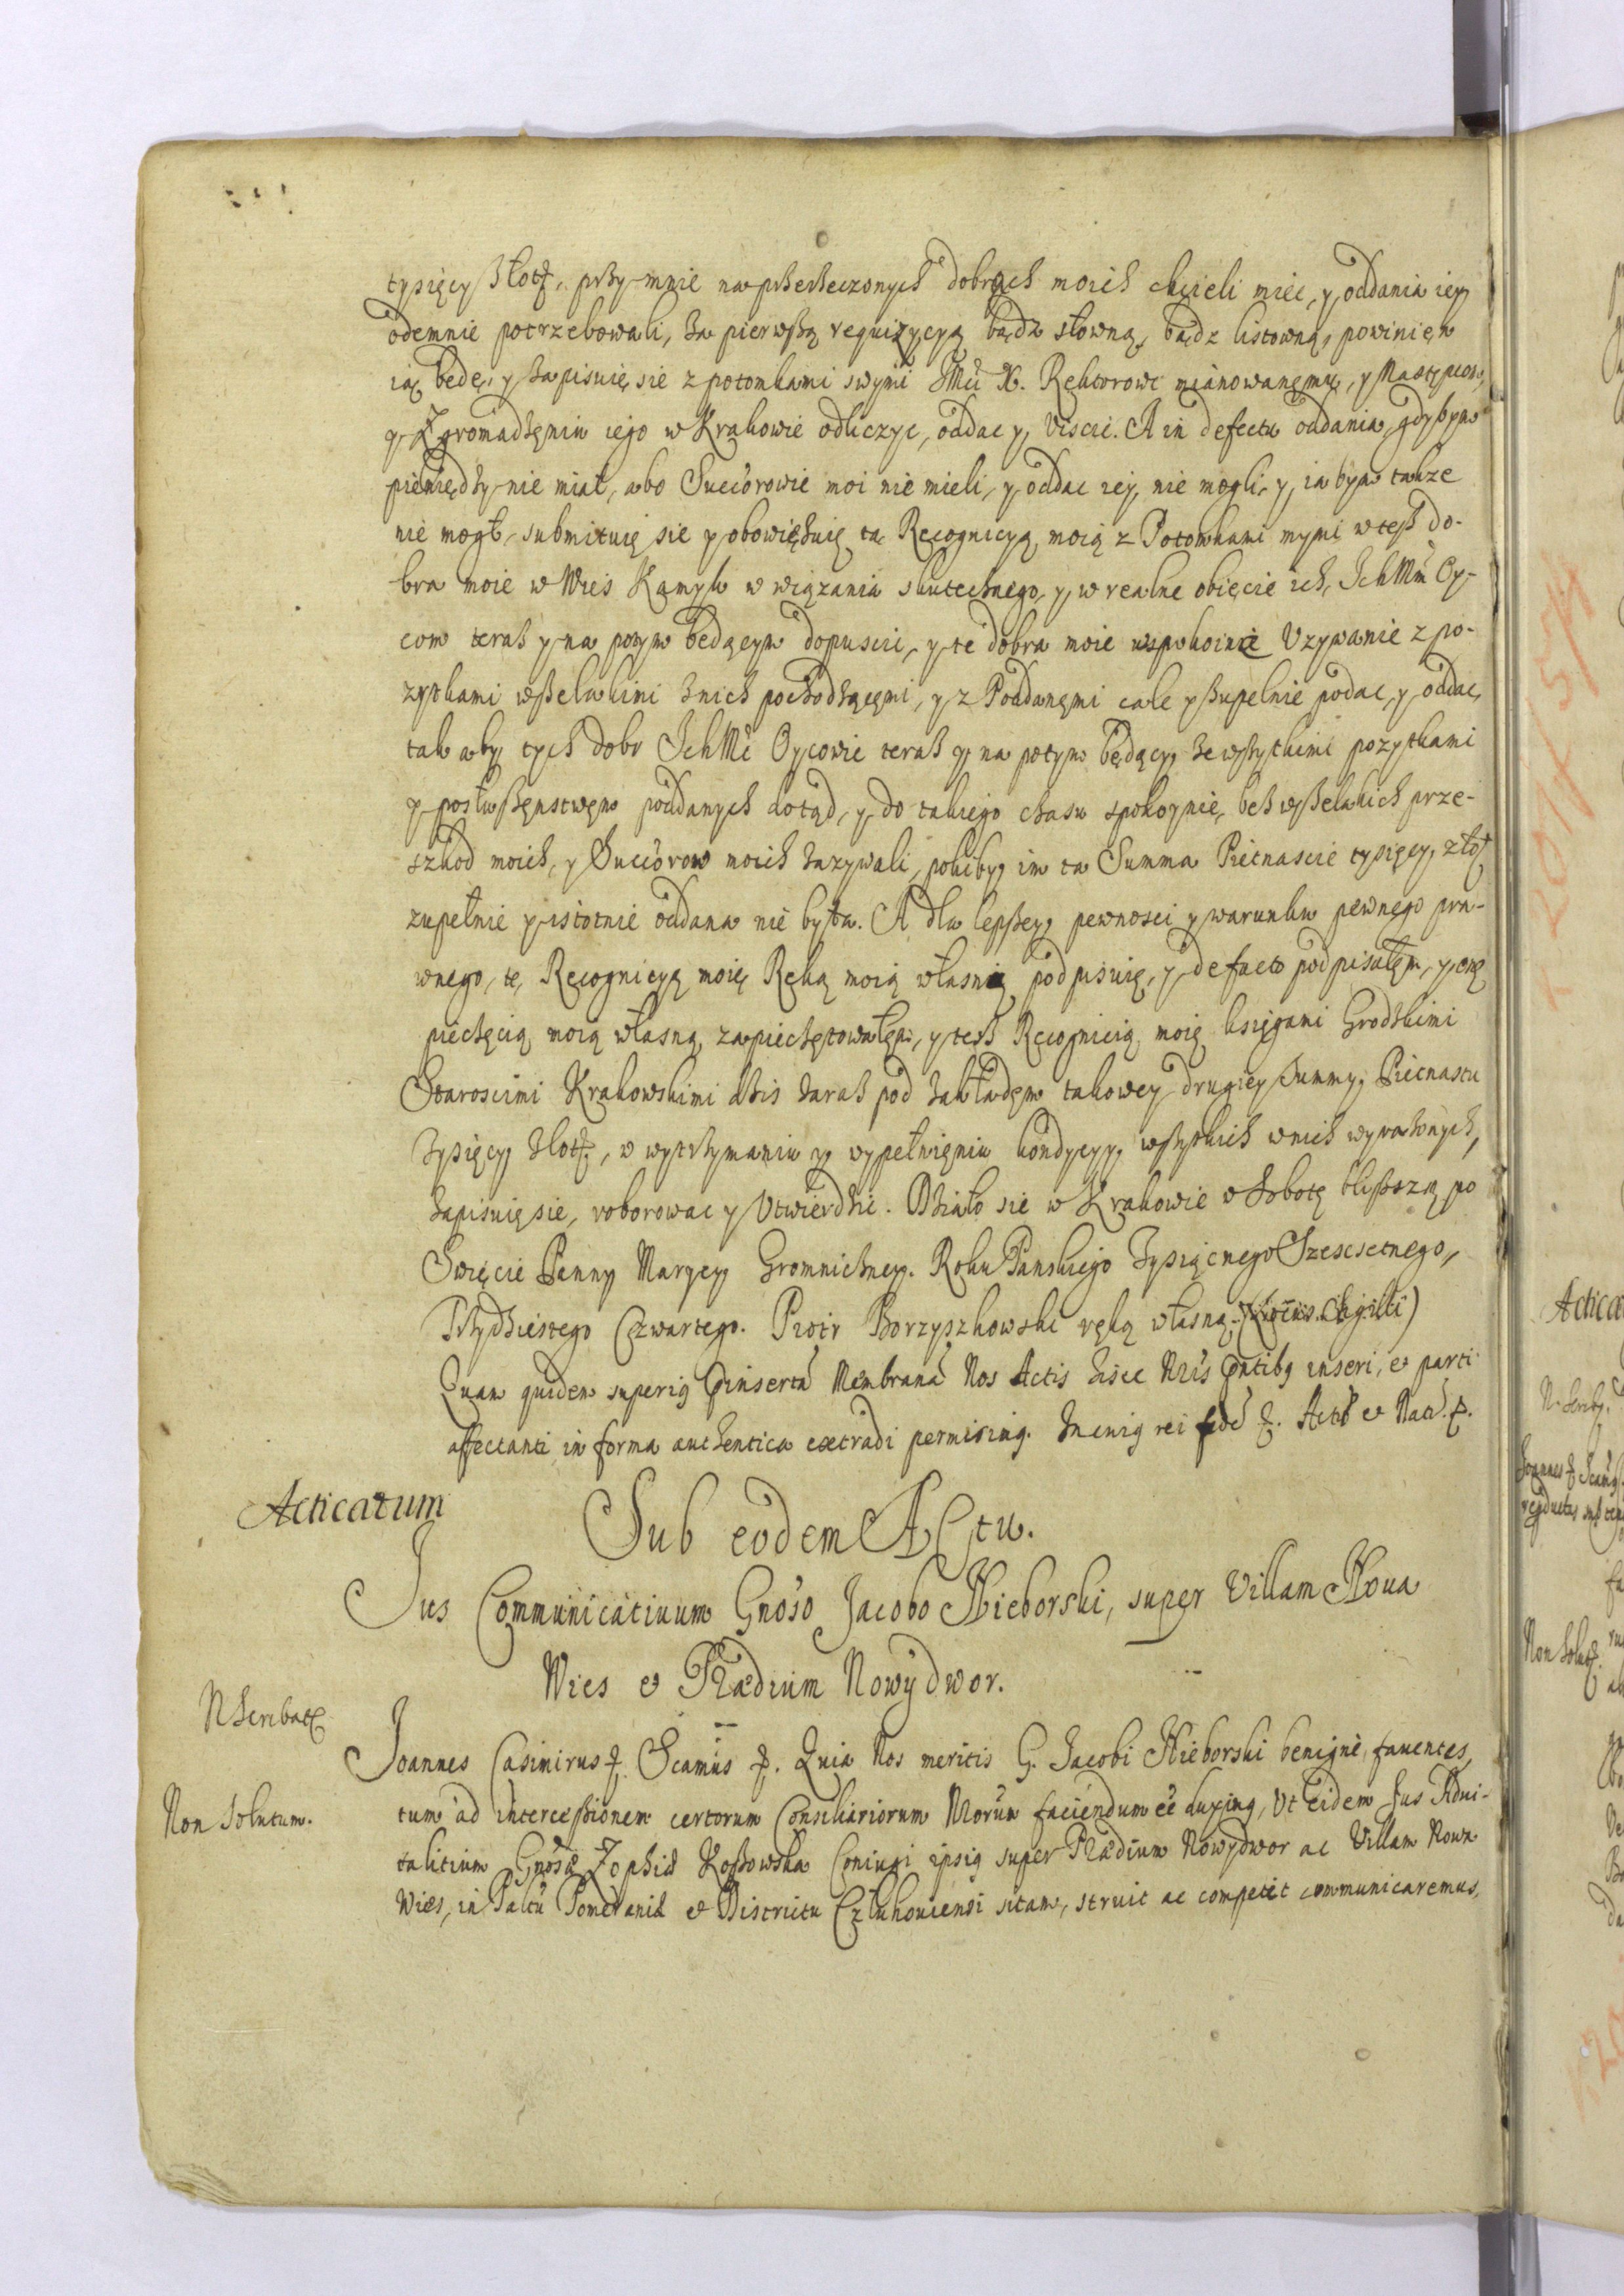 tysięcy złotʒ, przy mnie na przerzeczonych dobrach moich chcieli miec, y oddania iey
odemnie potrzebowali, za pierwszą requizycyą bądz słowną, bądz listowną, powinięn
ia bedę, y zapisuię sie z potomkami swymi JMci X. Rektorowi mianowanęmu, y Nastęmpcom,
y Zgromadzęniu iego w Krakowie odliczyc, oddac y, viscic. A in defectu oddania, gdybym
pieniędzy nie miał, abo Succorowie moi nie mieli, y oddac iey nie mogli, y ia bym takze
nie mogł, submituię sie y obowięzuię tą Recognicyą moią z Potomkami mymi w tesz do-
bra moie w Wies Kamyk w wiązania skutecznego, y w realne obięcie ich, IchMm Oy-
com teraz y na potym będącym dopuscic, y te dobra moie w spokoine Uzywanie z po-
zytkami wszelakimi z nich pochodzącęmi, y z Poddanęmi cale y zupełnie podac, y oddac,
tak aby tych dobr IchMc Oycowie teraz y na potym będący, ze wszytkimi pozytkami
y posłuszęnstwęm poddanych dotąd, y do takiego czasu spokoynie, bez wszelakich prze-
szkod moich, y Succorow moich zazywali, pokiby im ta Summa Pietnascie tysięcy złotʒ
zupełnie y istotnie oddana nie była. A dla lepszey pewnosci y warunku pewnego pra-
wnego, tę Recognicyą moię Ręką moią własną podpisuię, y de facto podpisałęm, y onę
pieczęcią moią własną zapieczętowałęm, y tesz Recognicią moię księgami Grodzkimi
Staroscimi Krakowskimi dzis zaraz pod zakładęm takowey drugiey summy Pietnastu
Tysięcy złotʒ, o wytrzymaniu y wypełnięniu kondycyy wszytkich w nich wyrazonych,
zapisuię sie, roborowac y Utwierdzic. Działo sie w Krakowie w Sobotę bliszszą po
Swięcie Panny Maryey Gromniczney. Roku Panskiego Tysiącnego Szescsetnego,
Trzydziestego Czwartego. Piotr Borzyszkowski ręką własną. (Locus Sigilli)
Quam quidem superiq̃ insertã Membranã Nos Actis hisce Nris pntibq inseri, et parti
affectanti in forma authentica extradi permisimq. In cuiq rei fidẽ ʒ. Actũ et Datũ ʒ.
Acticatum
Sub eodem Actu.
Jus Communicatiuum Gnoso Jacobo Nieborski, super Villam Noua
Wies et Prædium Nowy dwor.
N Scribatʒ
Joannes Casimirus ʒ. Scamus ʒ. Quia Nos meritis G. Jacobi Nieborski benignè fauentes,
Non Solutum.
tum ad intercessionem certorum Consiliariorum Nrorum faciendum eẽ duximq, Vt eidem Jus Adui-
talitium Gnosæ Zophiæ Kossowska Coniugi ipsiq super Prædium Nowydwor ac Villam Nowa
Wies, in Paltũ Pomeraniæ et Districtu Człuhouiensi sitam, seruit ac competit communicaremus,